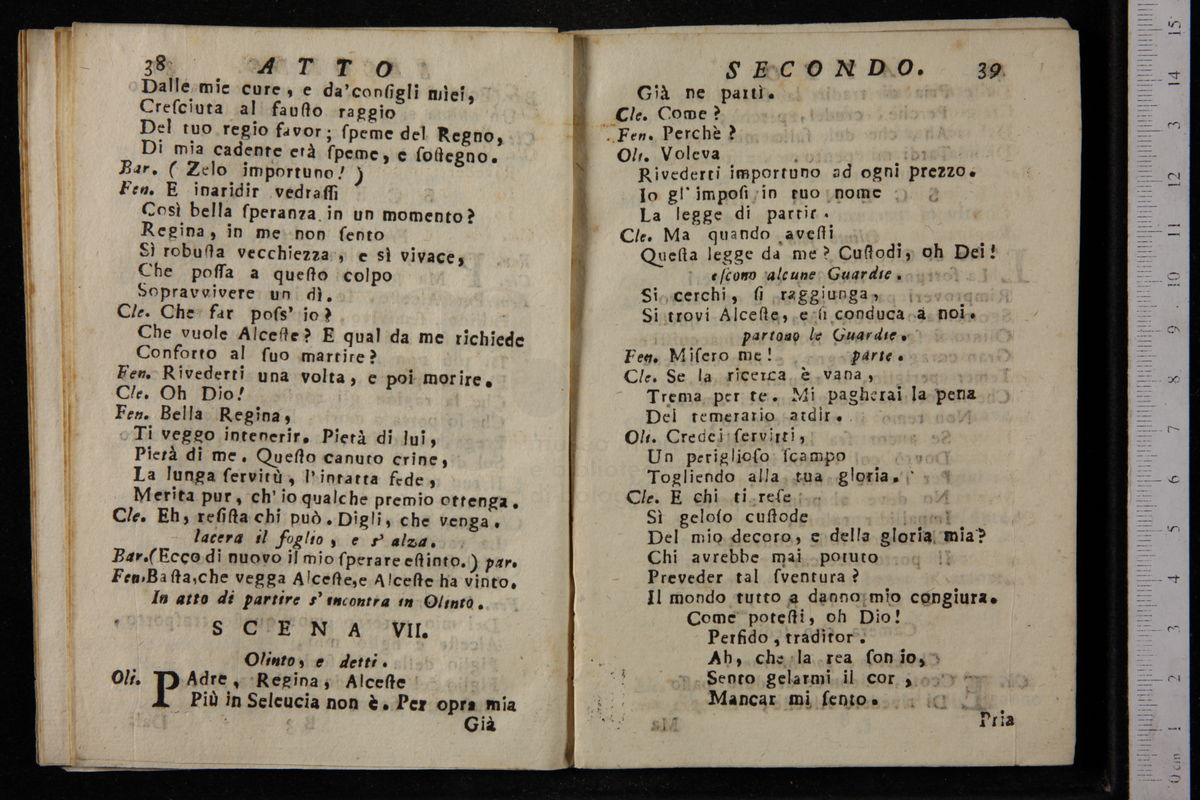 38 ATTO
Dalle mie cure, e da'conſigli miei,
Creſciuta al fauſto raggio
Del tuo regio favor; ſpeme del Regno,
Di mia cadente età ſpeme, e ſoſtegno.
Bar. ( Zelo importuno! )
Fen. E inaridir vedraſſi
Così bella ſperanza in un momento?
Regina, in me non ſento
Sì robuſta vecchiezza, e sì vivace,
Che poſſa a queſto colpo
Sopravvivere un dì.
Cle. Che far poſs' io?
Che vuole Alceſte? E qual da me richiede
Conforto al ſuo martire?
Fen. Rivederti una volta, e poi morire.
Cle. Oh Dio!
Fen. Bella Regina,
Ti veggo intenerir. Pietà di lui,
Pietà di me. Queſto canuto crine,
La lunga ſervitù, l'intatta fede,
Merita pur, ch'io qualche premio ottenga.
Cle. Eh, reſiſta chi può. Digli, che venga.
lacera il foglio, e s' alza.
Bar.(Ecco di nuovo il mio ſperare eſtinto.) par.
Fen.Baſta,che vegga Alceſte,e Alceſte ha vinto.
In atto di partire s' incontra in Olinto.
SCENA VII.
Olinto, e detti.
Oli. PAdre, Regina, Alceſte
Più in Seleucia non è. Per opra mia
Già
SECONDO. 39
Già ne partì.
Cle. Come?
Fen. Perchè?
Olt. Voleva
Rivederti importuno ad ogni prezzo.
Io gl' impoſi in tuo nome
La legge di partir.
Cle. Ma quando aveſti
Queſta legge da me? Cuſtodi, oh Dei!
eſcono alcune Guardie.
Si cerchi, ſi raggiunga,
Si trovi Alceſte, e ſi conduca a noi.
partono le Guardie.
Fen. Miſero me! parte.
Cle. Se la ricerca è vana,
Trema per te. Mi pagherai la pena
Del temerario ardir.
Olt. Credei ſervirti,
Un periglioſo ſcampo
Togliendo alla tua gloria.
Cle. E chi ti reſe
Sì geloſo cuſtode
Del mio decoro, e della gloria mia?
Chi avrebbe mai potuto
Preveder tal ſventura?
Il mondo tutto a danno mio congiura.
Come poteſti, oh Dio!
Perfido, traditor.
Ah, che la rea ſon io,
Sento gelarmi il cor,
Mancar mi ſento.
Pria
0 cm 1 2 3 4 5 6 7 8 9 10 11 12 3 14 15